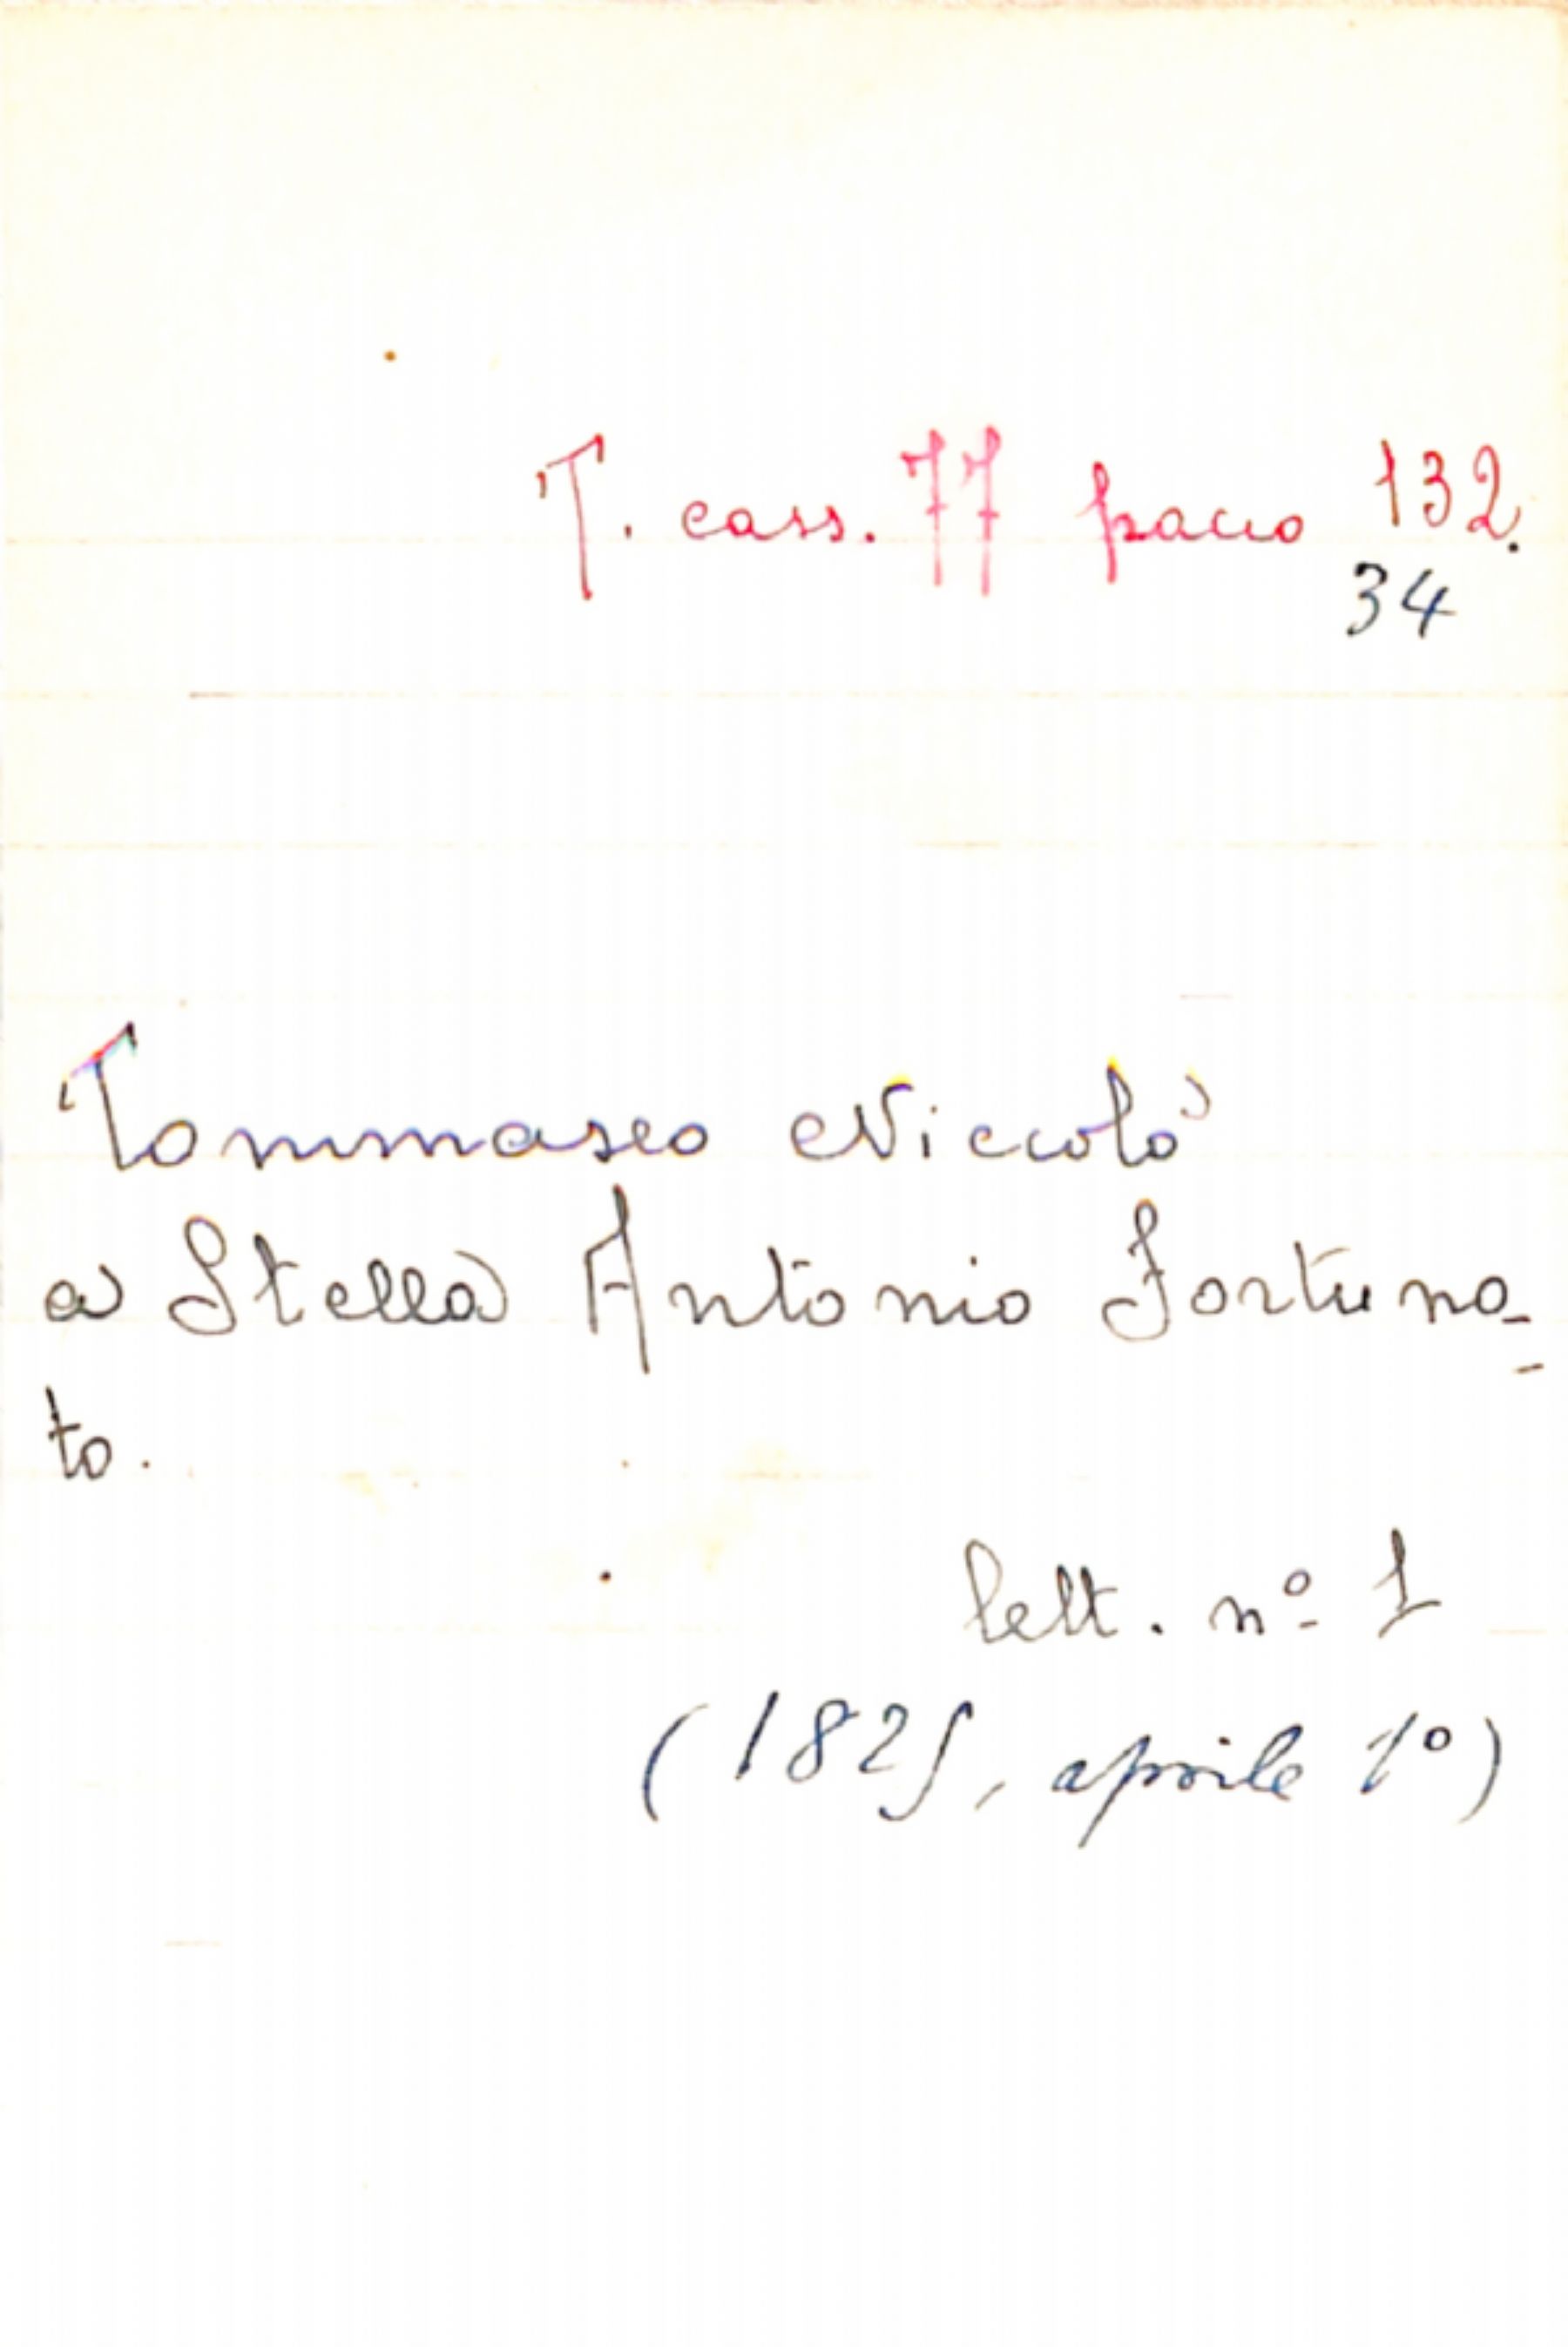 T. cass. 77 pacco 132.
34
Tommaseo Niccolò
a Stella Antonio Fortuna-
to.
lett. nº 1
(1825, aprile 1º)